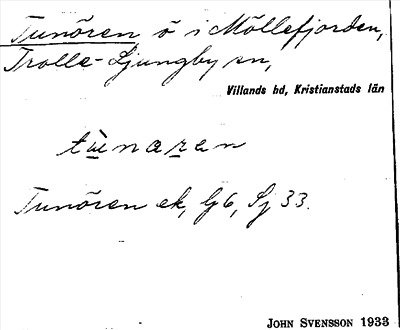 Tunören ö i Möllefjorden,
Trolle-Ljungby sn,
Villands hd, Kristianstads län
tùnaren
Tunören ek, G6, Sj 33.
JOHN SVENSSON 1933